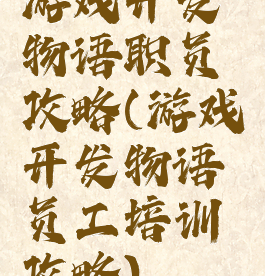 游戏开发
物语职员
攻略(游戏
开发物语
员工培训
攻略)